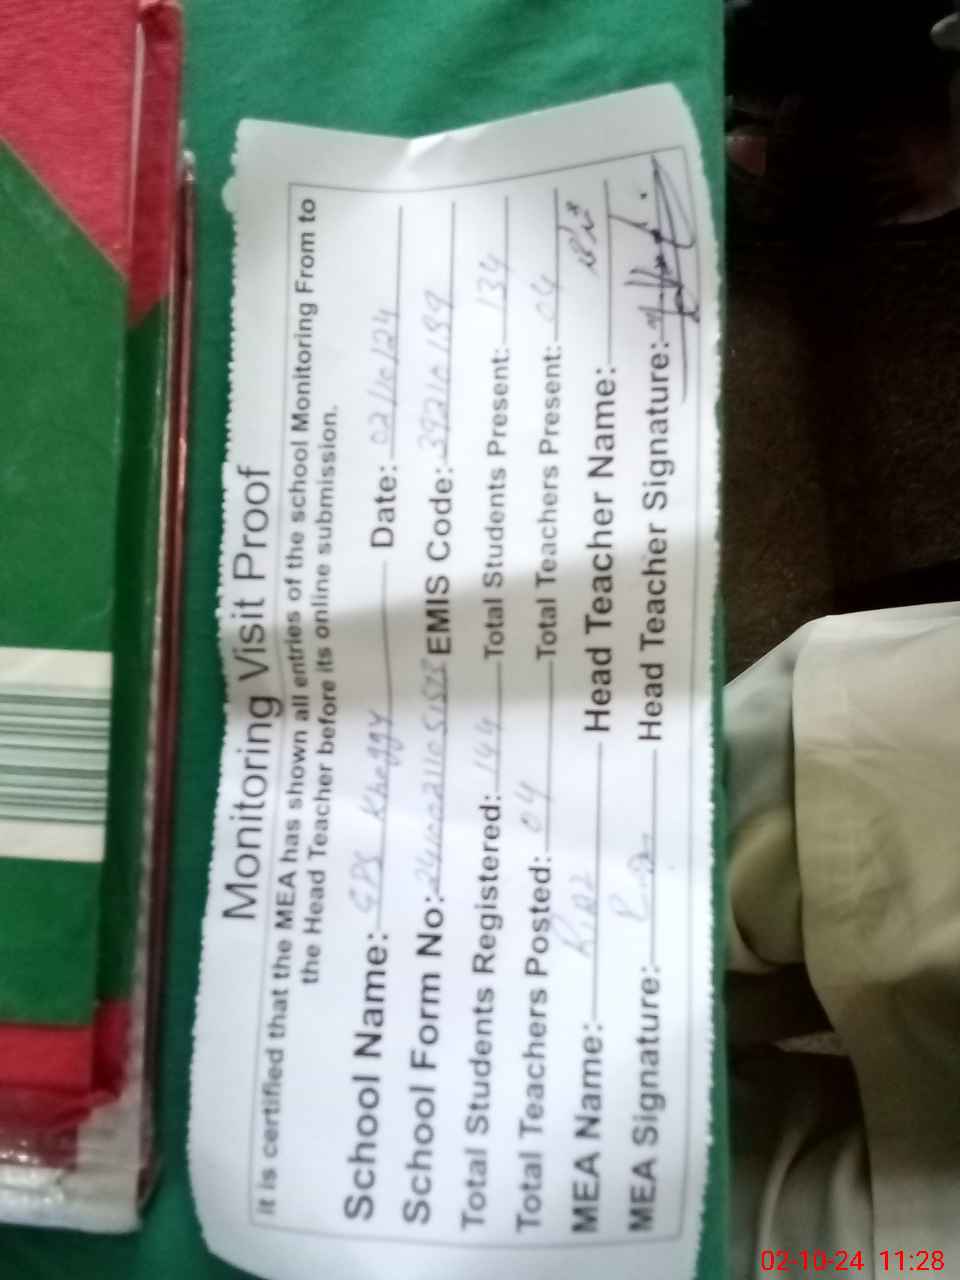 Monitoring Visit Proof
it is certified that the MEA has shown all entries of the school Monitoring From to
the Head Teacher before its online submission.
School Name: GPS Kheggy Date: 02/10/24
School Form No: EMIS Code:
Total Students Registered: 144 Total Students Present: 134
Total Teachers Posted: 04 Total Teachers Present: 04
MEA Name: Head Teacher Name:
MEA Signature: Head Teacher Signature:
02-10-24 11:28